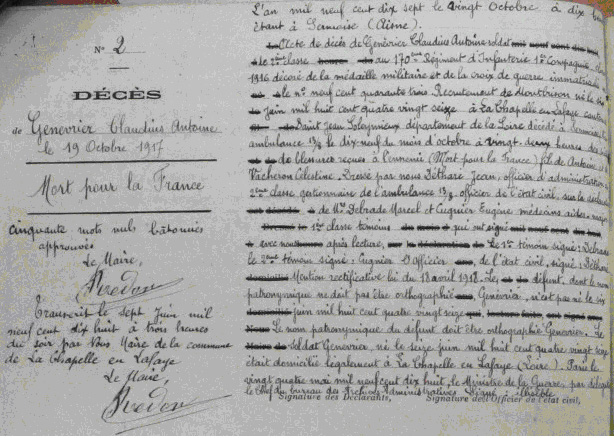 N° 2
DÉCÈS
de Genevrier Claudius Antoine
le 19 Octobre 1917
Mort pour la France
Cinquante mots nuls bâtonnés
approuvés
Le Maire,
Transcrit le sept Juin mil
neuf cent dix huit à trois heures
du soir par Nous Maire de la commune
de La Chapelle en Lafaye
Le Maire,
L'an mil neuf cent dix sept le vingt Octobre à dix
étant à Sermoise (Aisne)
Acte de décès de Genévrier Claudius Antoine soldat
de 2ème classe au 170ème Régiment d'Infanterie 1ère Compagnie,
1916 décoré de la médaille militaire et de la croix de guerre immatriculé
le n° neuf cent quarante trois Recrutement de Montbrison né le
Juin mil huit cent quatre vingt seize à La Chapelle en Lafaye canton
Saint Jean Soleymieux département de la Loire décédé à Sermoise
ambulance 13/9 le dix-neuf du mois d'octobre à vingt heures
de blessures reçues à l'ennemi (Mort pour la France) fils de Antoine et
Vacheron Célestine. Dressé par nous Béthare Jean, officier d'administration
2ème classe gestionnaire de l'ambulance 13/9 officier de l'état civil, sur la
de Mrs Debrade Marcel et Cugnier Eugène médecins aides-major
1ère classe témoins qui ont signé
avec nous après lecture, Le 1er témoin signé : Debrade
le 2ème témoin signé : Cugnier L'Officier de l'état civil, signé : Béthare
Mention rectificative du 18 avril 1918. Le défunt, dont le nom
patronymique ne doit pas être orthographié Genévrier, n'est pas né le
juin mil huit cent quatre vingt seize
Le nom patronymique du défunt doit être orthographié Genevrier. Le
soldat Genevrier, né le seize juin mil huit cent quatre vingt seize
était domicilié légalement à La Chapelle en Lafaye (Loire). Paris le
vingt quatre mai mil neuf cent dix huit, le Ministre de la Guerre, par
le Chef du bureau des Archives Administratives Signé : illisible
Signature des Déclarants, Signature de l'Officier de l'état civil,